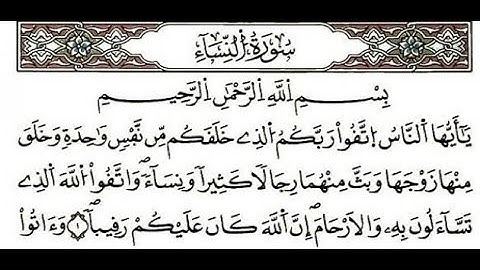 سُورَةُ اُ۬لنِّسَآءِ
بِسْمِ اِ۬للَّهِ اِ۬لرَّحْمَٰنِ اِ۬لرَّحِيمِ
يَٰٓأَيُّهَا اَ۬لنَّاسُ اُ۪تَّقُواْ رَبَّكُمُ اُ۬لذِے خَلَقَكُم مِّن نَّفْسٖ وَٰحِدَةٖ وَخَلَقَ
مِنْهَا زَوْجَهَا وَبَثَّ مِنْهُمَا رِجَالاٗ كَثِيراٗ وَنِسَآءٗۖ وَاتَّقُواْ اُ۬للَّهَ اَ۬لذِے
تَسَّآءَلُونَ بِهِۦ وَالَارْحَامَۖ إِنَّ اَ۬للَّهَ كَانَ عَلَيْكُمْ رَقِيباٗۖ ١ وَءَاتُواْ